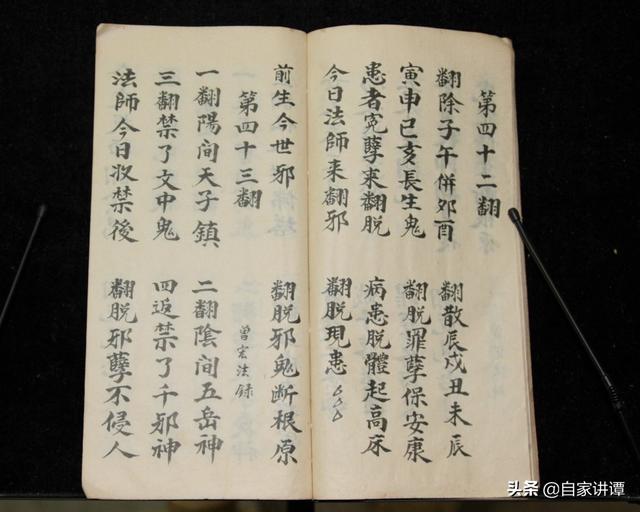 第四十二翻
翻除子午併卯酉 翻散辰戌丑未辰
寅申巳亥長生鬼 翻脱罪孽保安康
患者冤孽来翻脱 病患脱體起高床
今日法師来翻邪 翻脱現患
前生今世邪 翻脱邪鬼断根原
第四十三翻 曾宏法録
一翻陽間天子鎮 二翻陰間五岳神
三翻禁了文中鬼 四返禁了千邪神
法師今日收禁後 翻脱邪孽不侵人
头条@自家讲谭